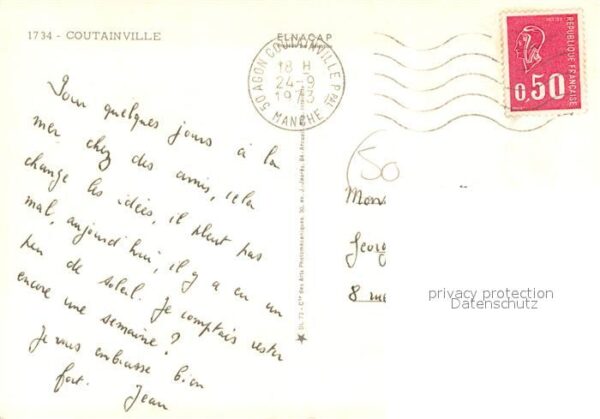 1734 - COUTAINVILLE
ELNACAP
50 AGON COUTAINVILLE Pal
18 H
24-9
1973
MANCHE
REPUBLIQUE FRANÇAISE
0,50
Pour quelques jours à la
mer chez des amis, cela
change les idées, il pleut pas
mal, aujourd'hui, il y a eu un
peu de soleil. Je comptais rester
encore une semaine ?
Je vous embrasse bien
fort. Jean
50
Mons
Georg
8 rue
DL 73 - Cie des Arts Photomécaniques
privacy protection
Datenschutz